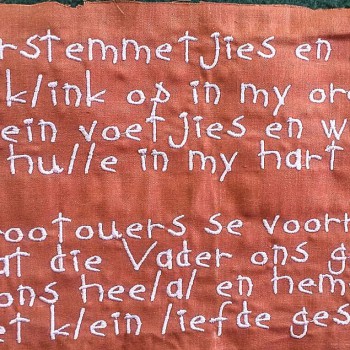 rstemmetjies en
klink op in my or
ein voetjies en w
hulle in my hart
rootouers se voor
at die Vader ons g
ons heelal en hem
et klein liefde ges